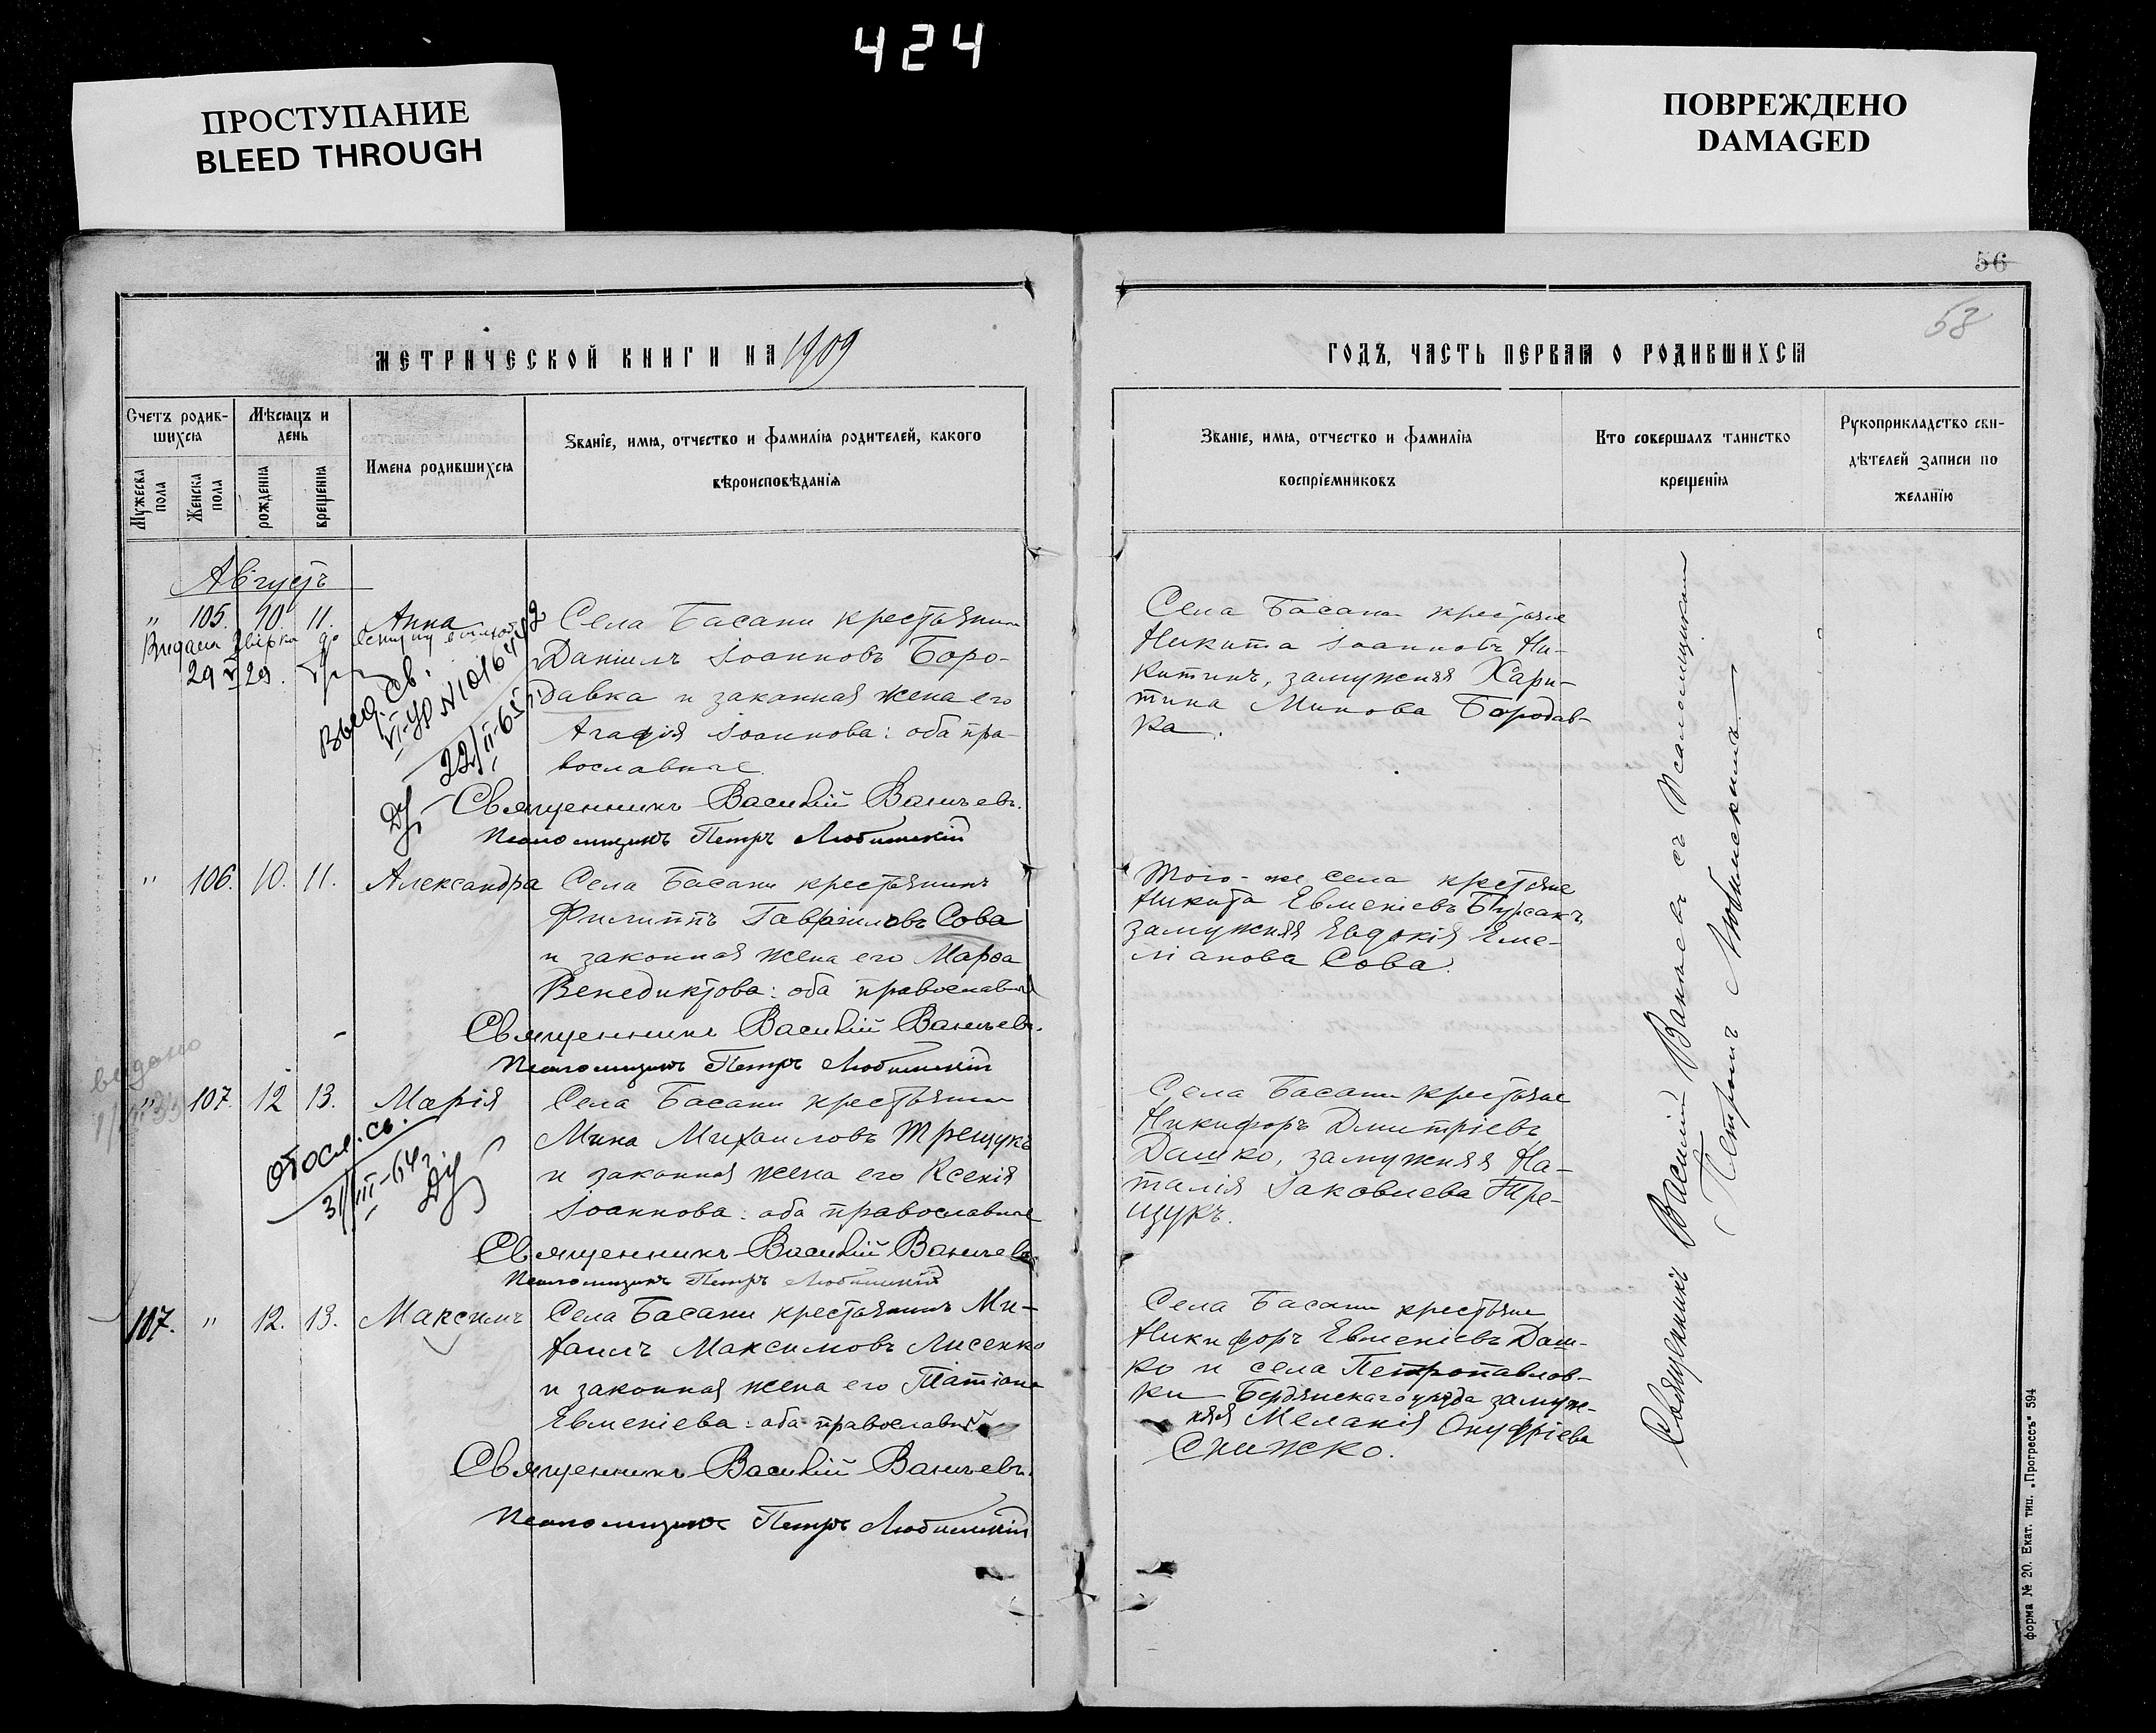 424
ПРОСТУПАНИЕ
BLEED THROUGH
ПОВРЕЖДЕНО
DAMAGED
56
МЕТРИЧЕСКОЙ КНИГИ НА 1909
Счетъ родив-
шихся
Мѣсяцъ и
день
Мужеска
пола
Женска
пола
рожденія
крещенія
Имена родившихся
Званіе, имя, отчество и фамилія родителей, какого
вѣроисповѣданія
Августъ
" 105. 10. 11. Анна
29 V 29.
Выд. св.
22/II-65
Села Басани крестьянинъ
Даніилъ Іоанновъ Боро-
давка и законная жена его
Агафія Іоаннова: оба пра-
вославные.
Священникъ Василій Ваничевъ.
Псаломщикъ Петръ Любимскій
" 106. 10. 11. Александра
Села Басани крестьянинъ
Филиппъ Гавріиловъ Сова
и законная жена его Марѳа
Венедиктова: оба православные
Священникъ Василій Ваничевъ.
Псаломщикъ Петръ Любимскій
видано
" 107. 12 13. Марія
Отосл. св.
31/III-64г.
Села Басани крестьянинъ
Мина Михаиловъ Трещукъ
и законная жена его Ксенія
Іоаннова: оба православные
Священникъ Василій Ваничевъ
Псаломщикъ Петръ Любимскій
107. " 12. 13. Максимъ
Села Басани крестьянинъ Ми-
хаилъ Максимовъ Лисенко
и законная жена его Татіана
Евменіева: оба православные
Священникъ Василій Ваничевъ.
Псаломщикъ Петръ Любимскій
ГОДЪ, ЧАСТЬ ПЕРВАЯ О РОДИВШИХСЯ
Званіе, имя, отчество и фамилія
воспріемниковъ
Кто совершалъ таинство
крещенія
Рукоприкладство сви-
дѣтелей записи по
желанію
Села Басани крестьяне
Никита Іоанновъ Ни-
китинъ, замужняя Хари-
тина Минова Бородав-
ка.
Того-же села крестьяне
Никита Евменіевъ Бурсакъ,
замужняя Евдокія Еме-
ліанова Сова.
Села Басани крестьяне
Никифоръ Дмитріевъ
Дашко, замужняя На-
талія Іаковлева Тре-
щукъ.
Села Басани крестьяне
Никифоръ Евменіевъ Даш-
ко и села Петропавлов-
ки Бердянскаго уѣзда замуж-
няя Меланія Онуфріева
Снижко.
Священникъ Василій Ваничевъ съ Псаломщикомъ
Петромъ Любимскимъ.
форма № 20. Екат. тип. „Прогрессъ" 594